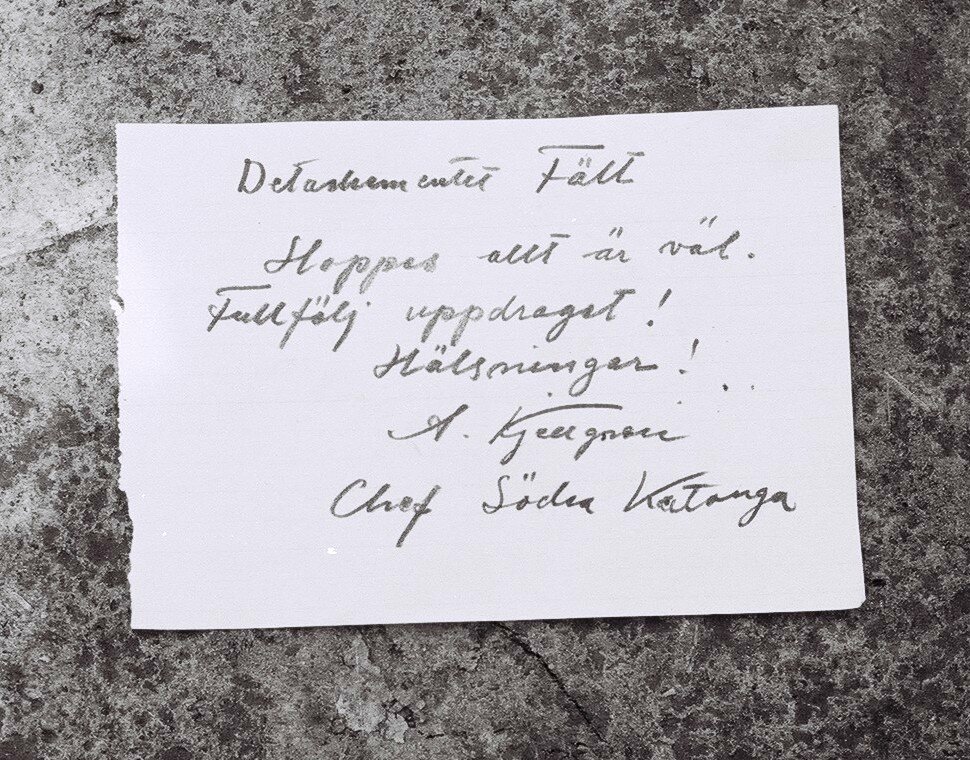 Detachementet Fält
Hoppes allt är väl.
Fullfölj uppdraget!
Hälsningar!
A. Kjellgren
Chef Södra Katanga